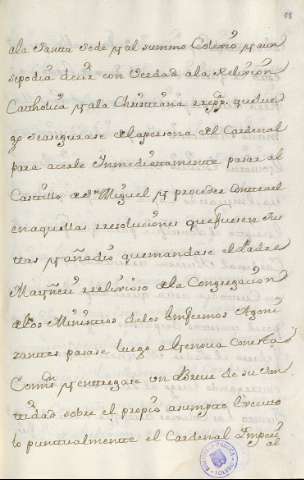 ala Santa Sede y al summo Colexio y aun
se podia decir con Verdad ala Relixion
Catholica y ala Christiana rrepp. que lue
go se asegurase de la persona del Cardenal
para acerle Inmediatamente pasar al
Castillo de Sn. Miguel y proceder contra el
en aquellas rresoluciones que fuesen Jus
tas y añadio que mandase el Padre
rrelixioso de la Congregacion
de los Ministros de los Enfermos Agoni
zantes pasase luego a Genova con esta
Comn. y entregase un Breve de su San
tidad sobre el propio asumpto executo
lo puntualmente el Cardenal Imperi
al